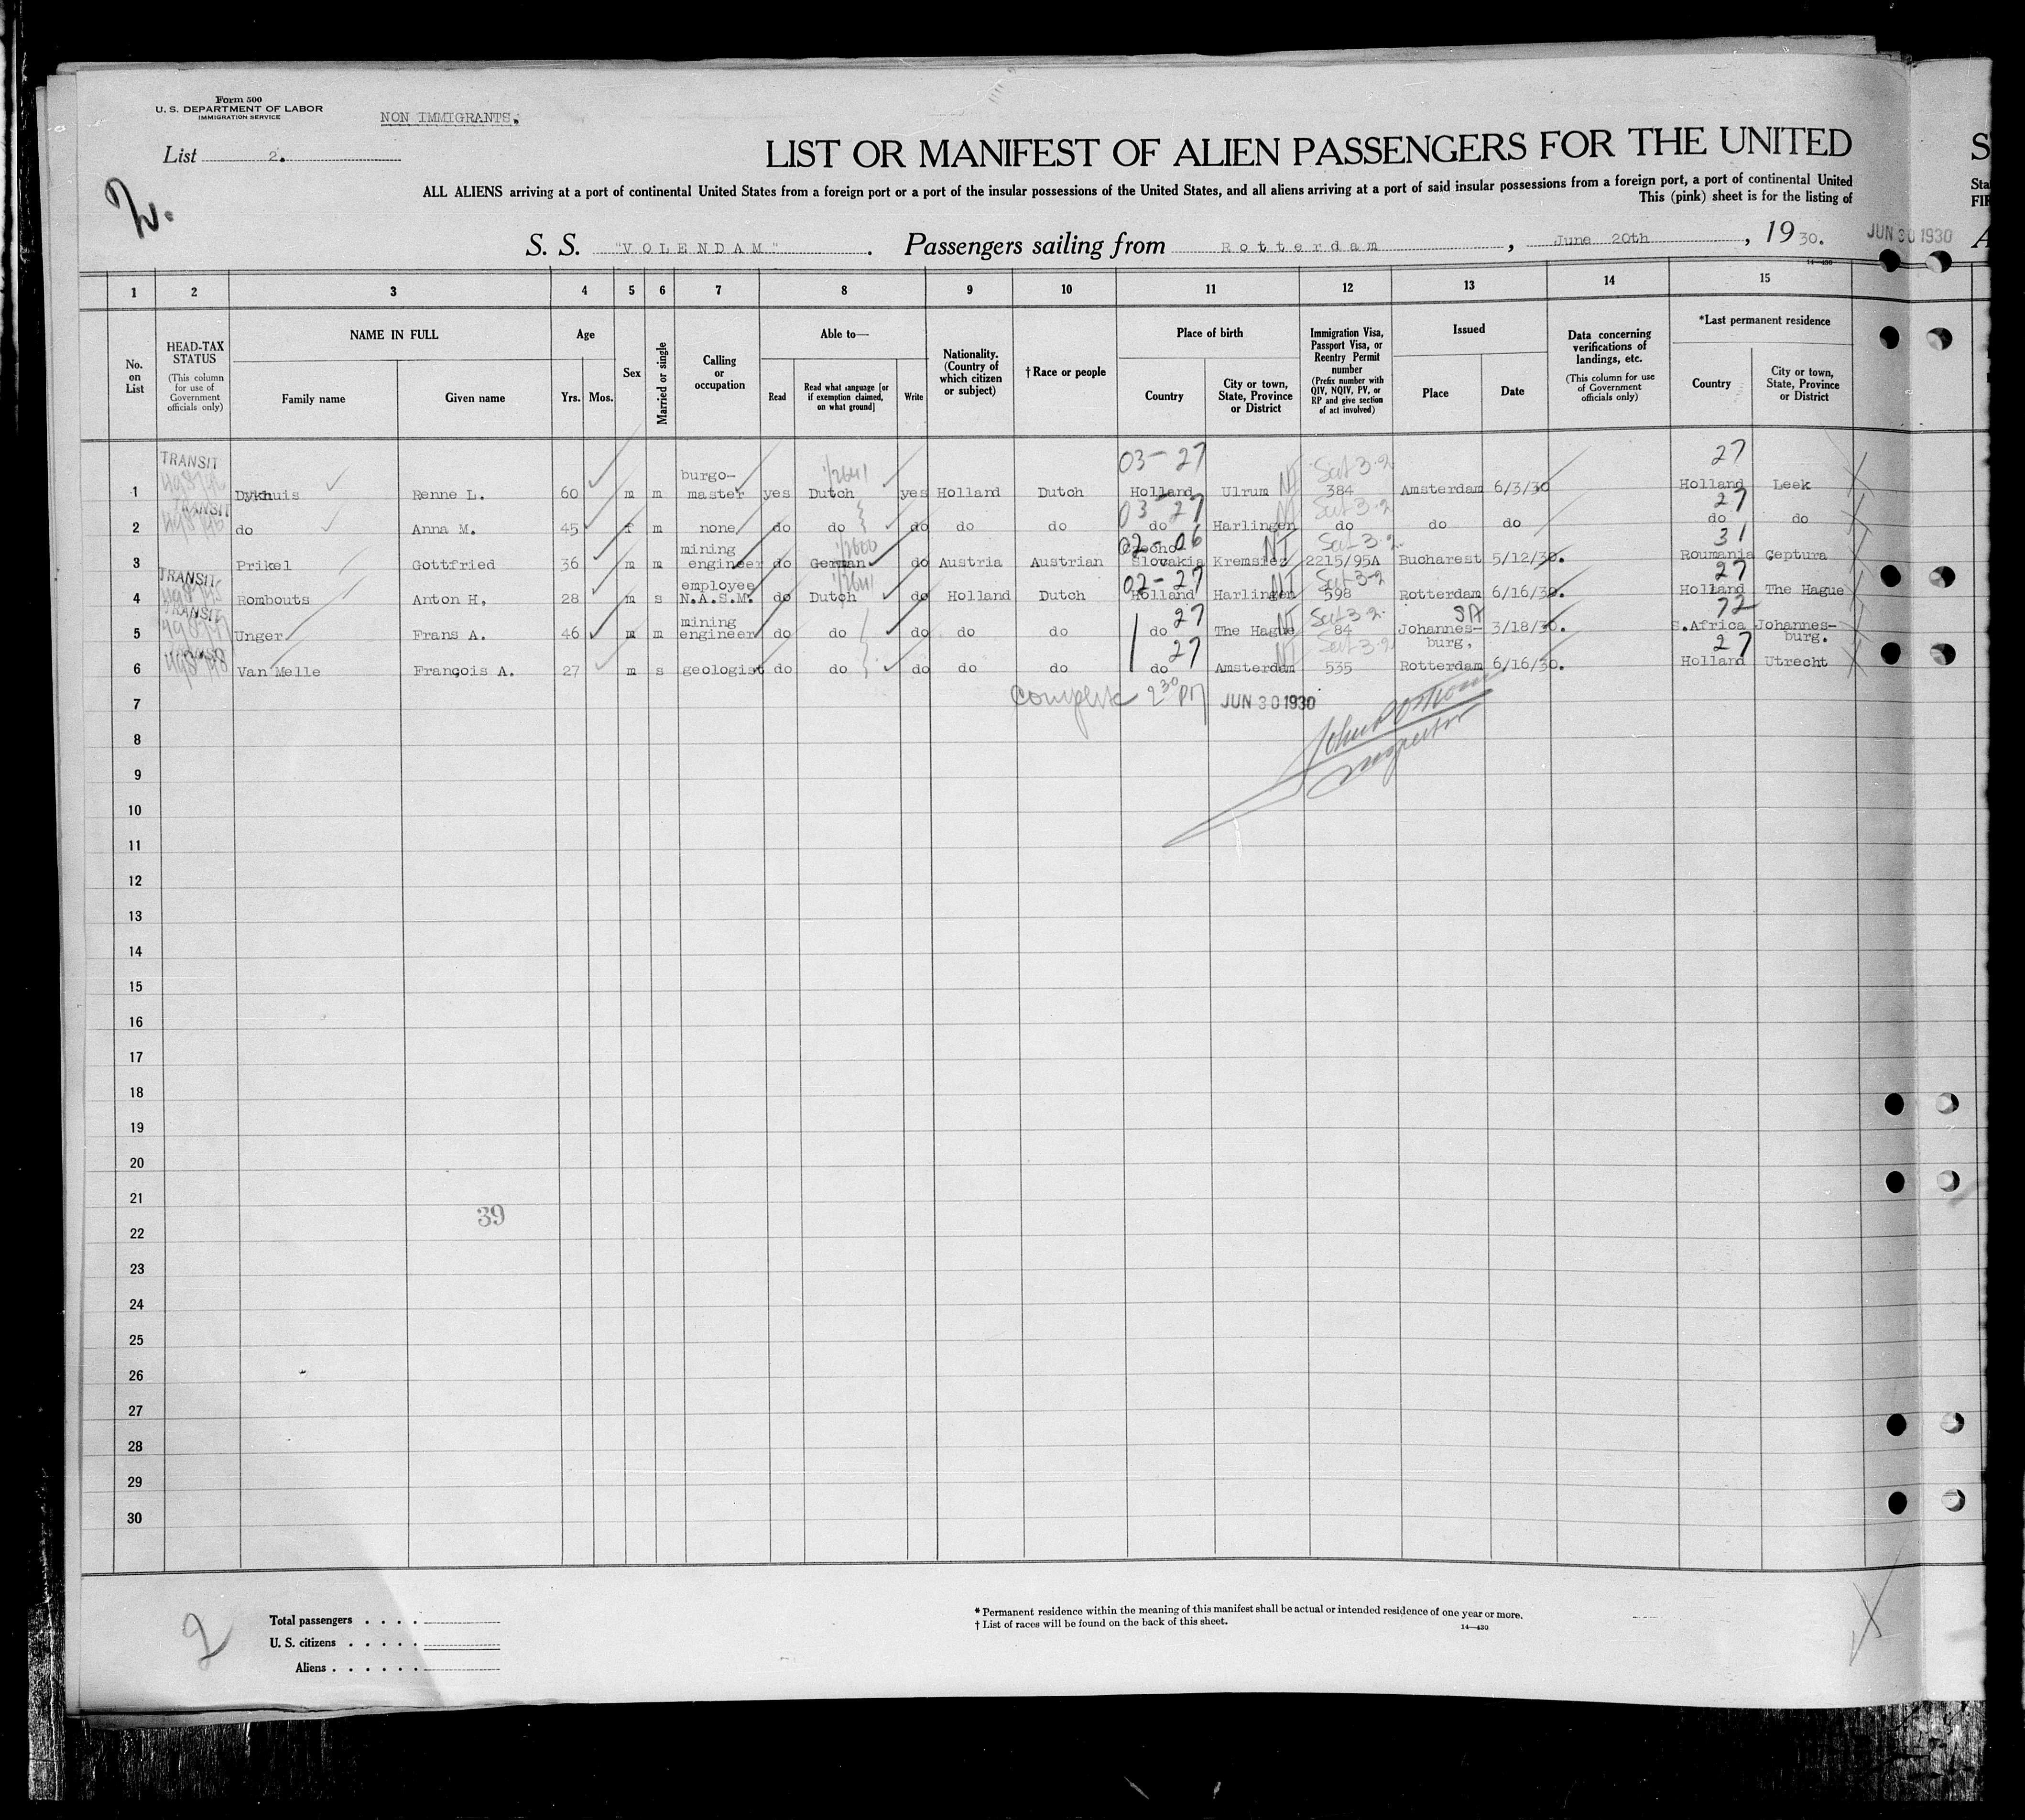 Form 500
U. S. DEPARTMENT OF LABOR
IMMIGRATION SERVICE
NON IMMIGRANTS.
List 2.
2.
LIST OR MANIFEST OF ALIEN PASSENGERS FOR THE UNITED
ALL ALIENS arriving at a port of continental United States from a foreign port or a port of the insular possessions of the United States, and all aliens arriving at a port of said insular possessions from a foreign port, a port of continental United
This (pink) sheet is for the listing of
S. S. "VOLENDAM". Passengers sailing from Rotterdam, June 20th, 1930. JUN 30 1930
14—430
1 2 3 4 5 6 7 8 9 10 11 12 13 14 15
No. on List
HEAD-TAX STATUS
(This column for use of Government officials only)
NAME IN FULL
Family name Given name
Age
Yrs. Mos.
Sex
Married or single
Calling or occupation
Able to—
Read
Read what language [or if exemption claimed, on what ground]
Write
Nationality. (Country of which citizen or subject)
† Race or people
Place of birth
Country
City or town, State, Province or District
Immigration Visa, Passport Visa, or Reentry Permit number
(Prefix number with QIV, NQIV, PV, or RP and give section of act involved)
Issued
Place Date
Data concerning verifications of landings, etc.
(This column for use of Government officials only)
*Last permanent residence
Country
City or town, State, Province or District
TRANSIT 03-27 27
1 Dykhuis Renne L. 60 m m burgo-master yes Dutch yes Holland Dutch Holland Ulrum NT 384 Amsterdam 6/3/30 Holland Leek
TRANSIT 03-27 27
2 do Anna M. 45 f m none do do do do do do Harlingen do do do do do
02-06 31
3 Prikel Gottfried 36 m m mining engineer do German do Austria Austrian Czecho Slovakia Kremsiez NT 2215/95A Bucharest 5/12/30. Roumania Ceptura
TRANSIT 02-27 27
4 Rombouts Anton H. 28 m s employee N.A.S.M. do Dutch do Holland Dutch Holland Harlingen NT 598 Rotterdam 6/16/30. Holland The Hague
TRANSIT 27 SA 72
5 Unger Frans A. 46 m m mining engineer do do do do do do The Hague NT 84 Johannes-burg, 3/18/30. S.Africa Johannes-burg.
27 27
6 Van Melle François A. 27 m s geologist do do do do do do Amsterdam 535 Rotterdam 6/16/30. Holland Utrecht
7 complete 2 30 PM JUN 30 1930
8
Inspector
9
10
11
12
13
14
15
16
17
18
19
20
21
39
22
23
24
25
26
27
28
29
30
2
Total passengers
U. S. citizens
Aliens
* Permanent residence within the meaning of this manifest shall be actual or intended residence of one year or more.
† List of races will be found on the back of this sheet.
14—430